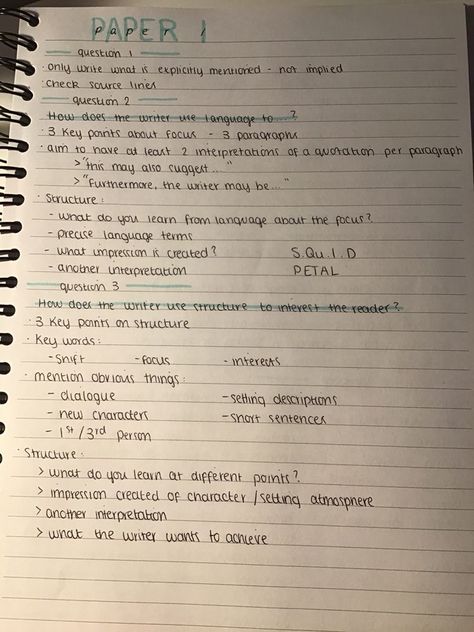 PAPER 1
paper 1
question 1
· only write what is explicitly mentioned - not implied
· check source lines
question 2
How does the writer use language to....?
· 3 key points about focus - 3 paragraphs
· aim to have at least 2 interpretations of a quotation per paragraph
> "this may also suggest..."
> "Furthermore, the writer may be..."
· Structure:
- what do you learn from language about the focus?
- precise language terms
- what impression is created? S.Qu.I.D
- another interpretation PETAL
question 3
How does the writer use structure to interest the reader?
· 3 key points on structure
· Key words:
- shift - focus - interests
· mention obvious things:
- dialogue - setting descriptions
- new characters - short sentences
- 1st/3rd person
· Structure:
> what do you learn at different points?
> impression created of character/setting atmosphere
> another interpretation
> what the writer wants to achieve